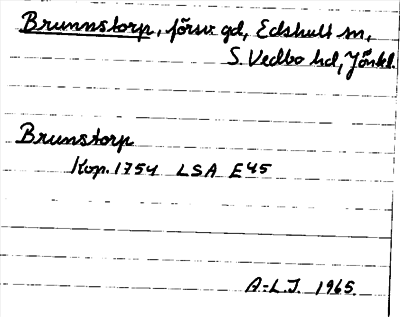 Brunnstorp, försv. gd, Edshult sn,
S. Vedbo hd, Jönkl.
Brunstorp
Kop. 1754 LSA E45
A-L.J. 1965.